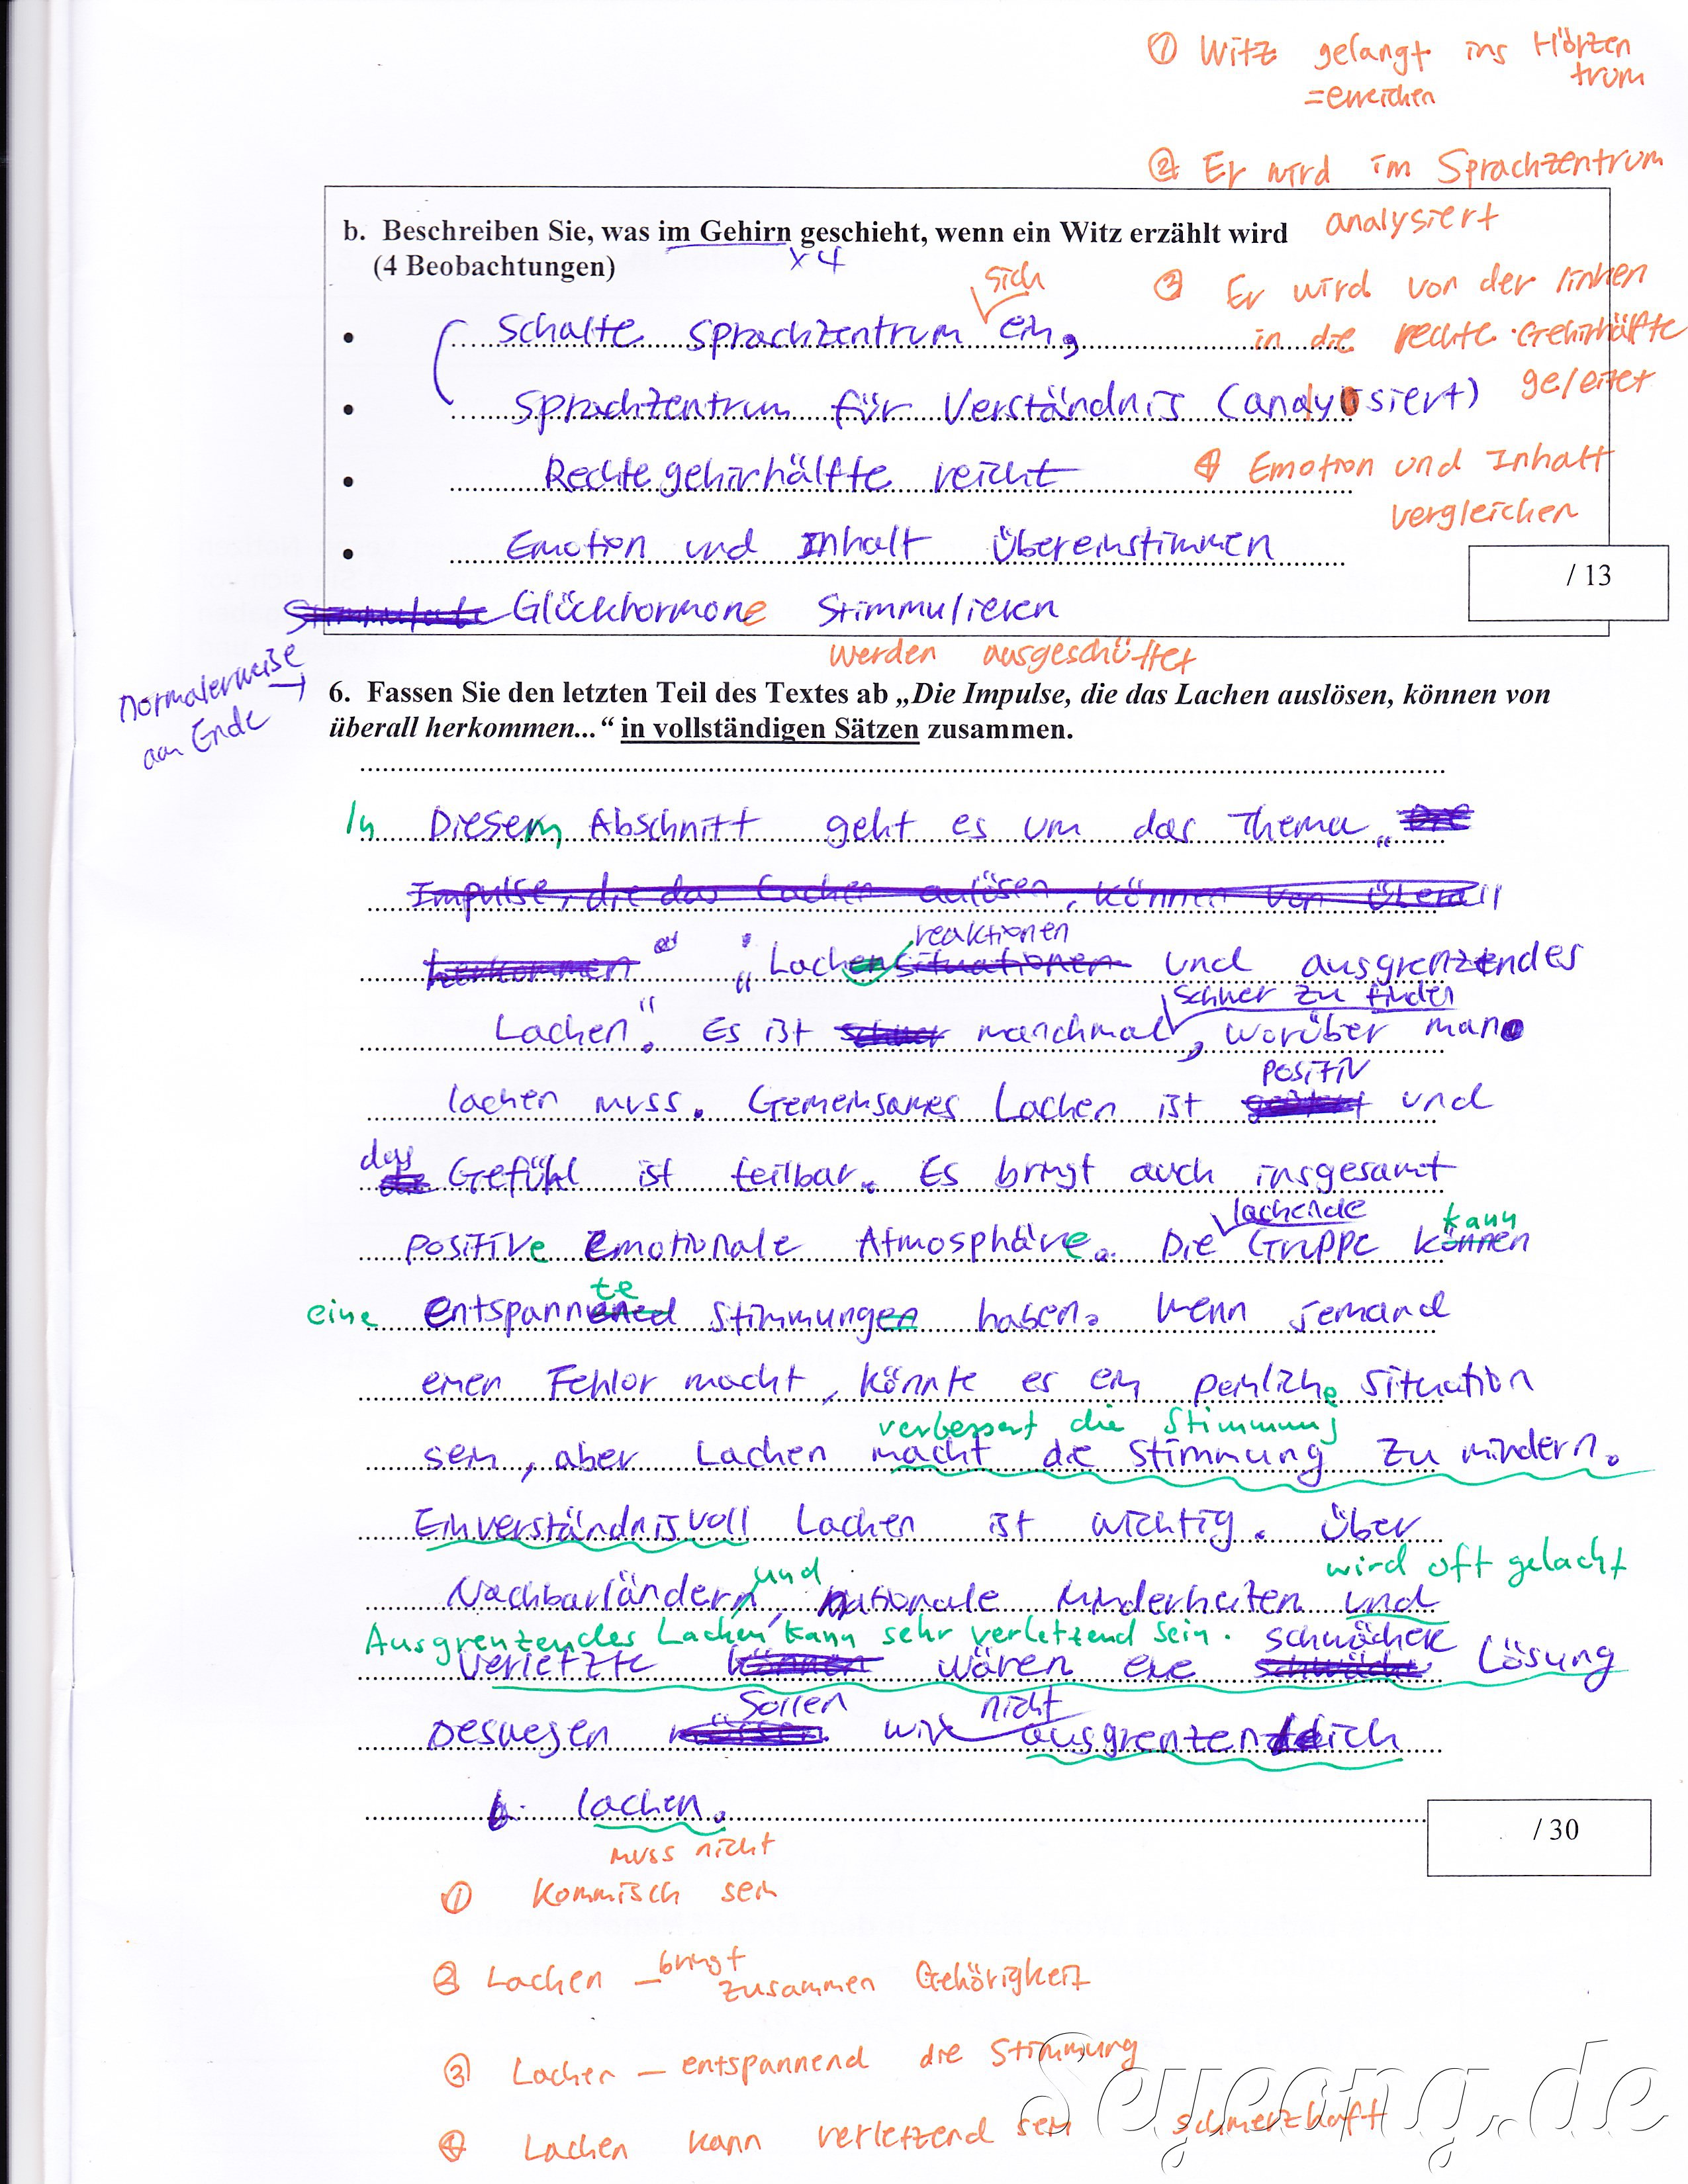 ① Witz gelangt ins Hörzen
trum
=erreichen
② Er wird im Sprachzentrum
analysiert
b. Beschreiben Sie, was im Gehirn geschieht, wenn ein Witz erzählt wird
(4 Beobachtungen)
x4
③ Er wird von der linken
in die rechte Gehirhälfte
geleitet
sich
• Schalte Sprachzentrum ein,
• Sprachzentrum für Verständnis (analysiert)
• Rechte gehirhälfte reicht
④ Emotion und Inhalt
vergleichen
• Emotion und Inhalt übereinstimmen
/ 13
Glückhormone Stimmulieren
werden ausgeschüttet
Normalerweise
am Ende
6. Fassen Sie den letzten Teil des Textes ab „Die Impulse, die das Lachen auslösen, können von
überall herkommen...“ in vollständigen Sätzen zusammen.
In Diesem Abschnitt geht es um das Thema „
Impulse, die das Lachen aulösen, können von überall
herkommen
reaktionen
„Lachensituationen und ausgrenzendes
schwer zu finden
Lachen". Es ist manchmal, worüber man
positiv
lachen muss. Gemeinsames Lachen ist und
das Gefühl ist teilbar. Es bringt auch insgesamt
lachende kann
positive Emotionale Atmosphäre. Die Gruppe können
te
eine entspannened Stimmungen haben. Wenn jemand
einen Fehlor macht, könnte es ein peinliche Situation
verbessert die Stimmung
sein, aber Lachen macht die Stimmung zu mindern.
Einverständnisvoll Lachen ist wichtig. Über
und wird oft gelacht
Nachbarländern, nationale Minderheiten und
Ausgrenzendes Lachen kann sehr verletzend sein. schwächere
Verletzte können wären eie Lösung
sollen nicht
Deswegen wir ausgrenzendlich
lachen.
/ 30
muss nicht
① Kommisch sein
② Lachen – bringt zusammen Gehörigkeit
③ Lachen – entspannend die Stimmung
④ Lachen kann verletzend sein schmerzhaft
Seyeong.de